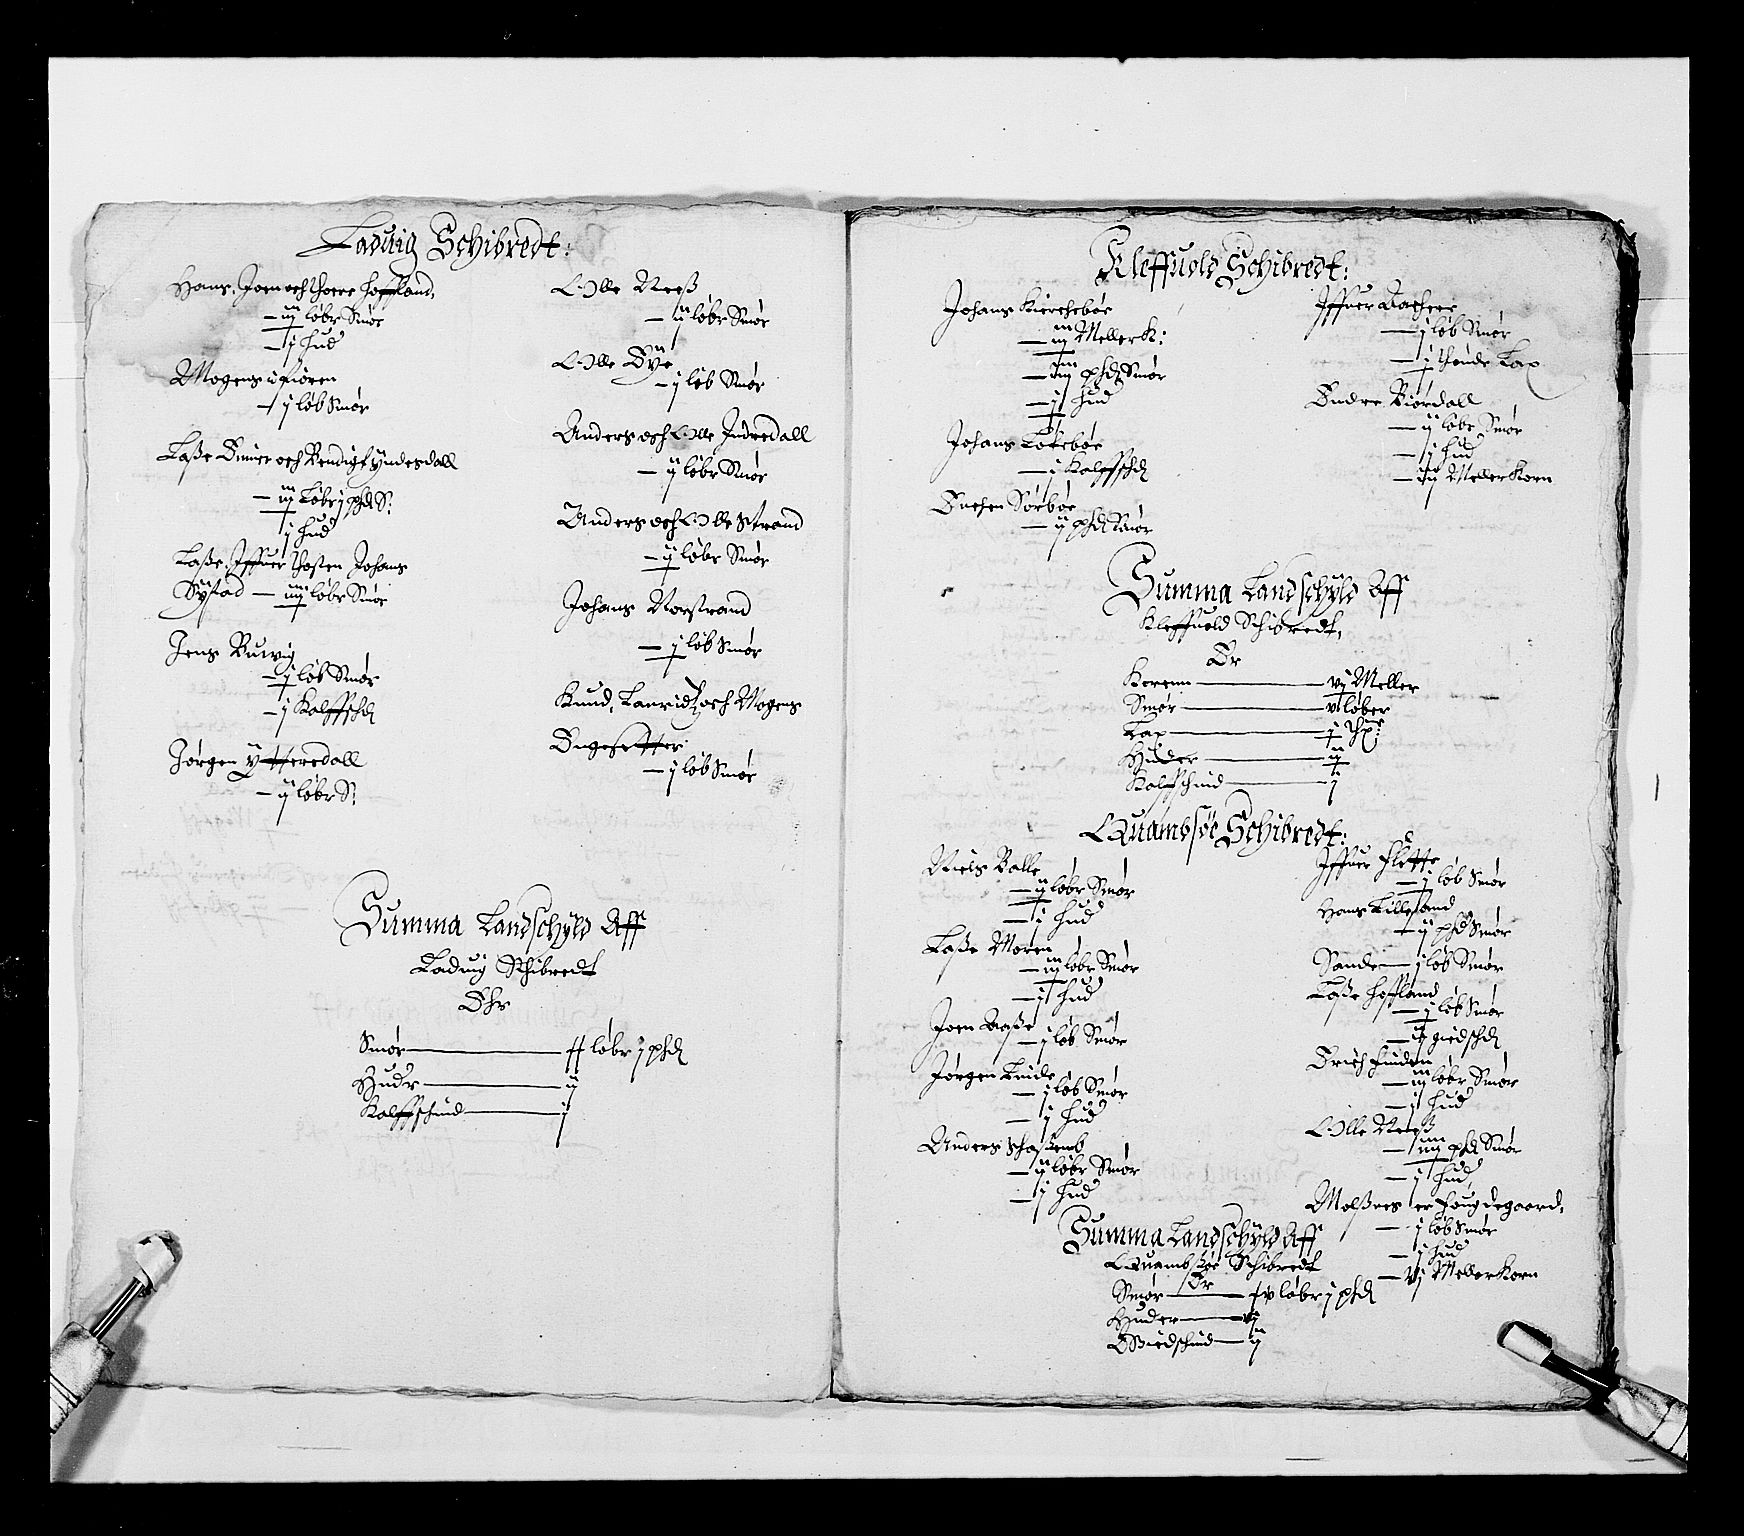 Laduig Schibredt:
Hans, Joen och Thore Hoffland,
— iij løbr Smør
— j hud
Mogens
— j løb Smør
Laße Dinier och Bendigt Yndesdall
— iij Løbr j pfd S:
j hud
Laße, Iffuer Thosten Johans
Systad — iiij løbr Smør
Jens Buwig
— j løb Smør
— j Kalffschd
Jørgen Ytteredall
— ij løbr S:
Olle Neeß
— ij løbr Smør
Olle Øye
— j løb Smør
Anders och Olle Indredall
— ij løbr Smør
Anders och Olle Strand
— ij løbr Smør
Johans Norstrand
— j løb Smør
Knud, Lauridtz och Mogens
Engesetter
— j løb Smør
Summa Landschyld Aff
Laduig Schibredt
Ehr
Smør — løbr j pfd
Hudr — ij
Kalffschind — j
Kleffuold Schibredt:
Johans Kirchebøe
— iij Meller K:
— iiij pfd Smør
— j hud
Johans Løkebøe
— j Kalffschd
Sørbøe
— ij pfd Smør
Iffuer Backeee
— j løb Smør
— j thønde Lax
Endre Biørdall
— ij løbr Smør
— j hud
— iij Meller Korn
Summa Landschyld Aff
Kleffuold Schibredt,
Er
Korenn — vj Meller
Smør — v løber
Lax — j thr:
Huder — ij
Kalffschind — j
Quambsøe Schibredt:
Niels Balle
— ij løbr Smør
— j hud
Laße Møren
— iij løbr Smør
— j hud
Joen Aaße
— j løb Smør
Jørgen Leide
— j løb Smør
— j hud
Anders
— ij løbr Smør
— j hud
Iffuer Flette
— j løb Smør
Hans Lilleland
— ij pfd Smør
Sande — j løb Smør
Laße Hoffland
— j løb Smør
— ij giedschd
Erich Finden
— iij løbr Smør
— j hud
Olle Neeß
— iiij pfd Smør
— j hud,
Molßnes er Fougdegaard,
— j løb Smør
— j hud
— vj Meller Korn
Summa Landschyld Aff
Quambsøe Schibredt
Er
Smør — løbr j pfd
Huder — vij
Giedschind — ij